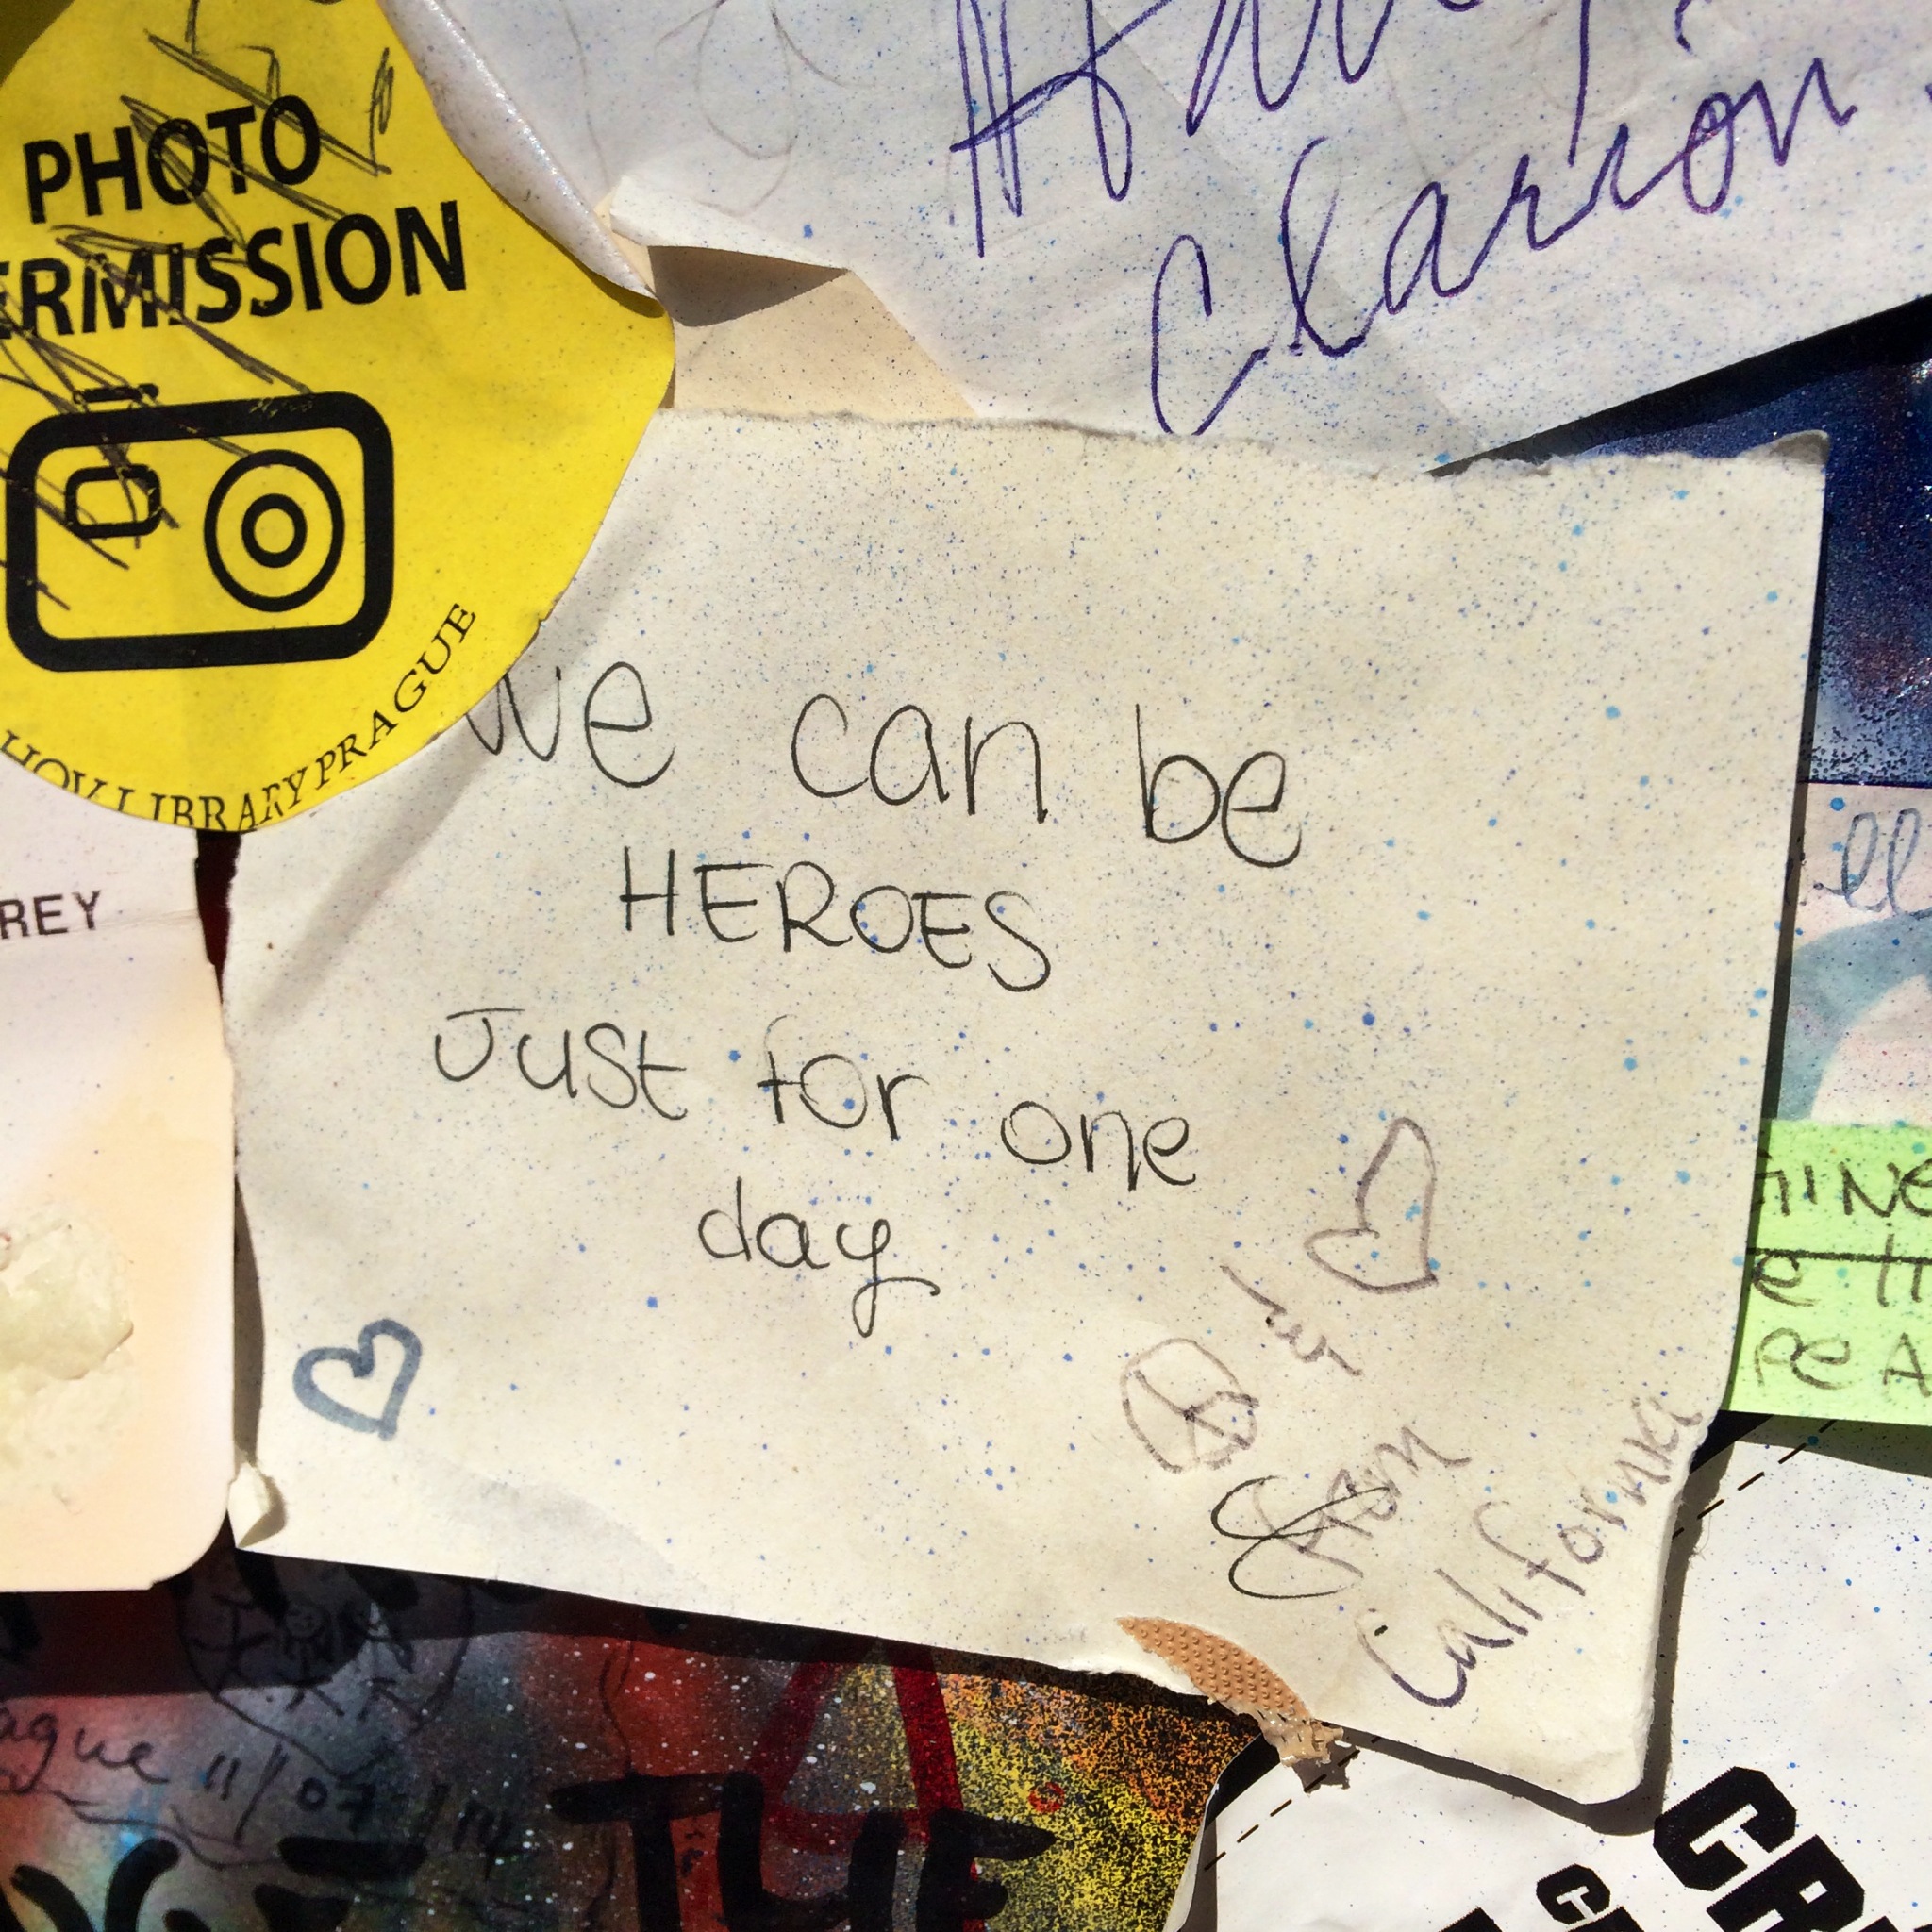 PHOTO
ERMISSION
HOV LIBRARY PRAGUE
Clarion
REY
We can be
HEROES
Just for one
day
from
California
ell
GINE
e
PEA
ague 11/07/14
THE
CR